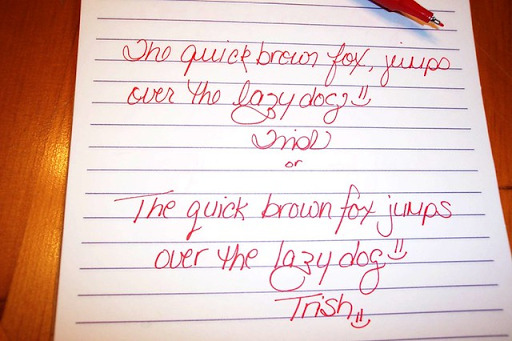 The quick brown fox, jumps
over the lazy dog
Trish
or
The quick brown fox jumps
over the lazy dog
Trish